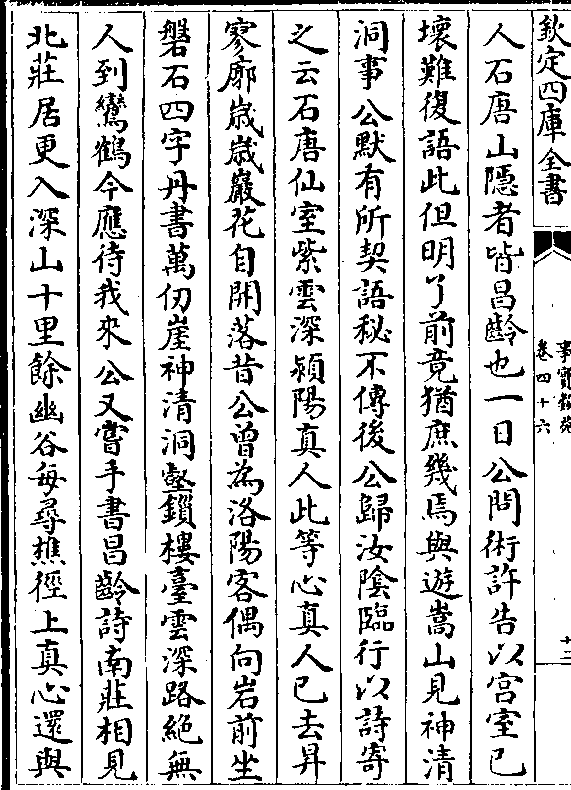 欽定四庫全書
事實類苑
卷四十六
十二
人石唐山隱者皆昌齡也一日公問術許告以宫室已
壞難復語此但明了前竟猶庶幾焉與遊嵩山見神清
洞事公默有所契語秘不傳後公歸汝陰臨行以詩寄
之云石唐仙室紫雲深潁陽真人此等心真人已去昇
寥廓嵗嵗巖花自開落昔公曽為洛陽客偶向岩前坐
磐石四字丹書萬仞崖神清洞壑鎻樓臺雲深路絶無
人到鸞鶴今應待我來公又嘗手書昌齡詩南莊相見
北莊居更入深山十里餘幽谷每尋樵徑上真心還與